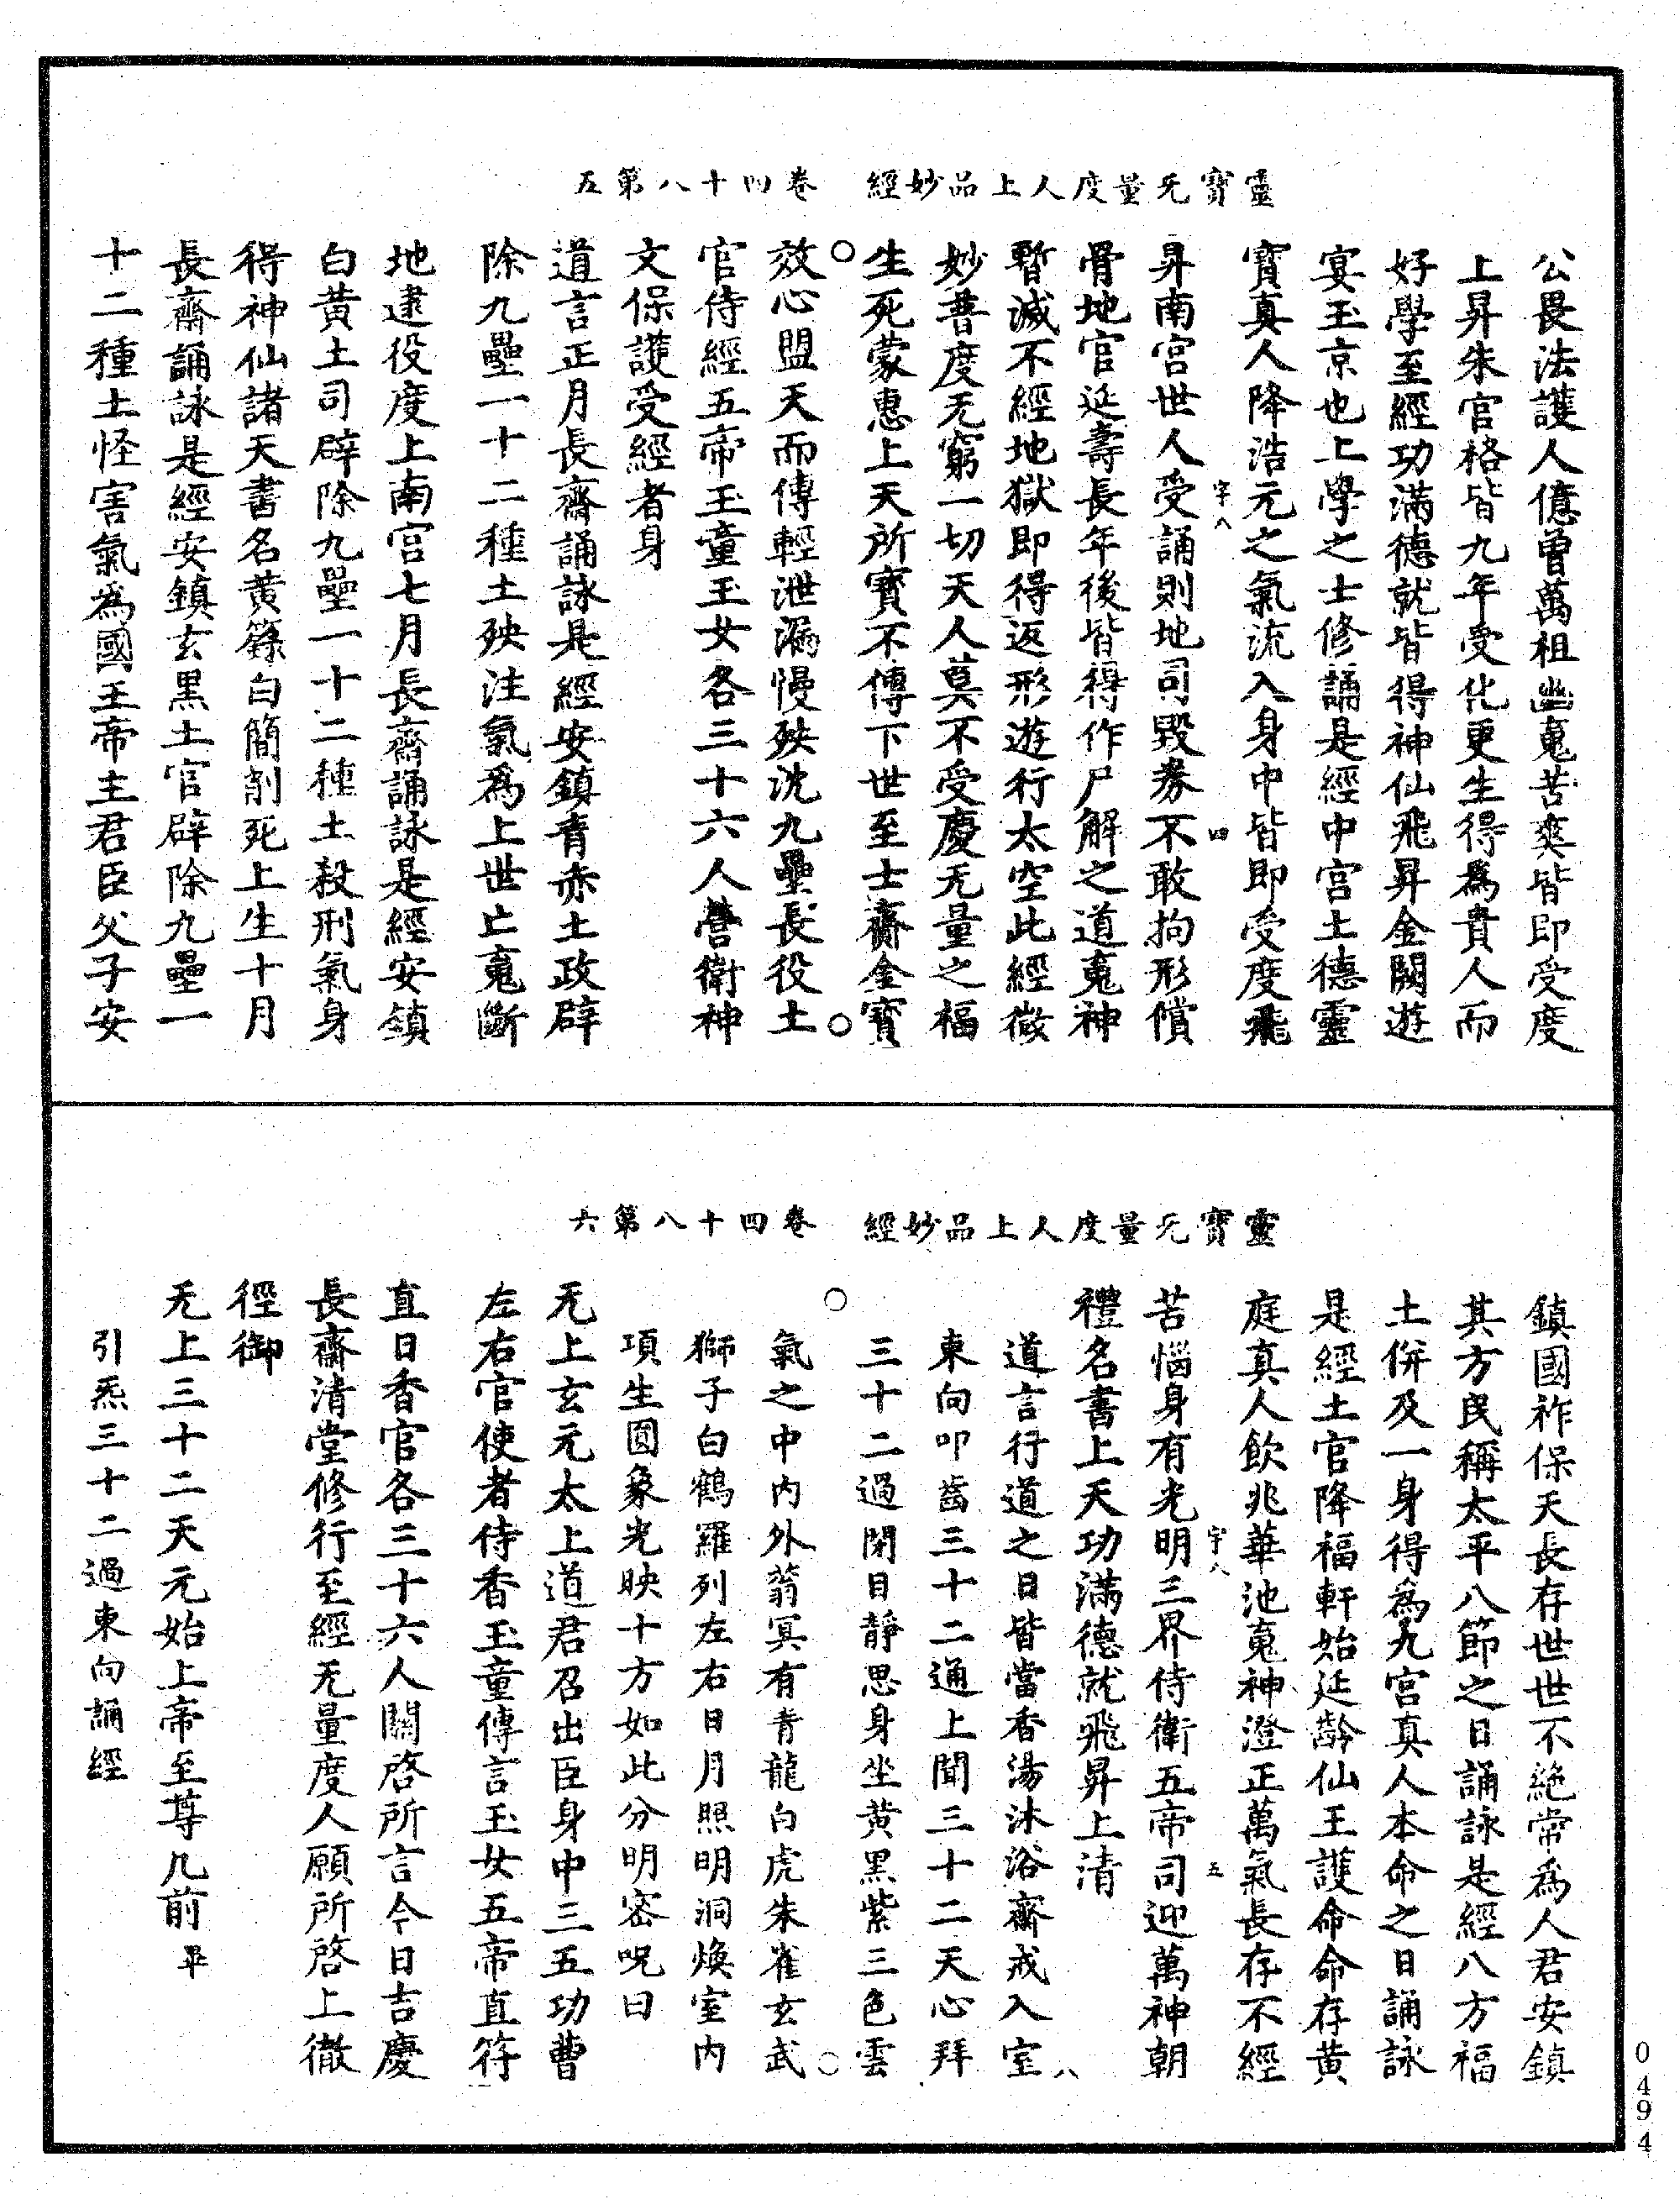 靈寶无量度人上品妙經　卷四十八第五
公畏法護人億曾萬祖幽䰟苦爽皆即受度
上昇朱宫格皆九年受化更生得為貴人而
好學至經功滿德就皆得神仙飛昇金闕遊
宴玉京也上學之士修誦是經中宫土德靈
寶真人降浩元之氣流入身中皆即受度飛
宇八　四
昇南宫世人受誦則地司毀劵不敢拘形償
骨地官延壽長年後皆得作尸解之道䰟神
暫滅不經地獄即得返形遊行太空此經微
妙普度无窮一切天人莫不受慶无量之福
生死蒙惠上天所寶不傳下世至士齎金寶
效心盟天而傳輕泄漏慢殃沈九壘長役土
官侍經五帝玉童玉女各三十六人營衛神
文保護受經者身
道言正月長齋誦詠是經安鎮青赤土政辟
除九壘一十二種土殃注氣爲上世亡䰟斷
地逮役度上南宫七月長齋誦詠是經安鎮
白黄土司辟除九壘一十二種土殺刑氣身
得神仙諸天書名黄籙白簡削死上生十月
長齋誦詠是經安鎮玄黑土官辟除九壘一
十二種土怪害氣爲國王帝主君臣父子安
靈寶无量度人上品妙經　卷四十八第六
鎮國祚保天長存世世不絶常爲人君安鎮
其方民稱太平八節之日誦詠是經八方福
土併及一身得爲九宫真人本命之日誦詠
是經土官降福軒始延齡仙王護命命存黄
庭真人飲兆華池䰟神澄正萬氣長存不經
宇八　五
苦惱身有光明三界侍衛五帝司迎萬神朝
禮名書上天功滿德就飛昇上清
八
道言行道之日皆當香湯沐浴齋戒入室
東向叩齒三十二通上聞三十二天心拜
三十二過閉目靜思身坐黄黑紫三色雲
氣之中内外蓊冥有青龍白虎朱雀玄武
獅子白鶴羅列左右日月照明洞煥室内
項生圓象光映十方如此分明密呪曰
无上玄元太上道君召出臣身中三五功曹
左右官使者侍香玉童傳言玉女五帝直符
直日香官各三十六人關啓所言今日吉慶
長齋清堂修行至經无量度人願所啓上徹
徑御
无上三十二天元始上帝至尊几前　畢
引炁三十二過東向誦經
0494